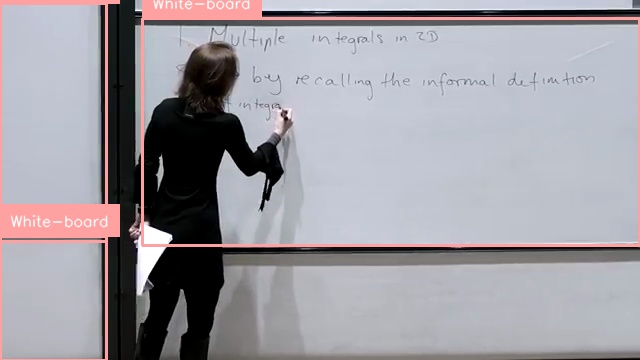 White-board
1. Multiple integrals in 2D
by recalling the informal definition
integra
White-board